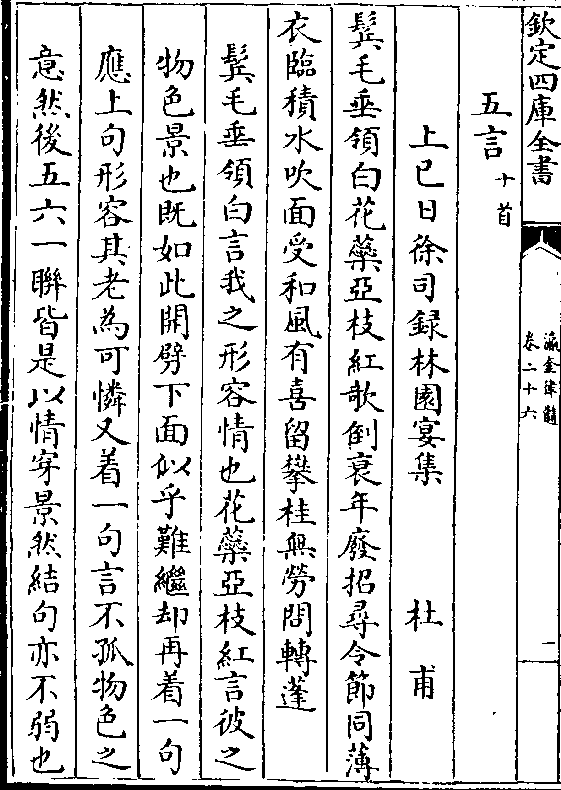 欽定四庫全書
瀛奎律髓
卷二十六
二
五言十首
上巳日徐司録林園宴集 杜甫
鬂毛垂領白花蘂亞枝紅欹倒衰年廢招尋令節同薄
衣臨積水吹面受和風有喜留攀桂無勞問轉蓬
鬂毛垂領白言我之形容情也花蘂亞枝紅言彼之
物色景也既如此開劈下面似乎難繼却再着一句
應上句形容其老為可憐又着一句言不孤物色之
意然後五六一聨皆是以情穿景然結句亦不弱也